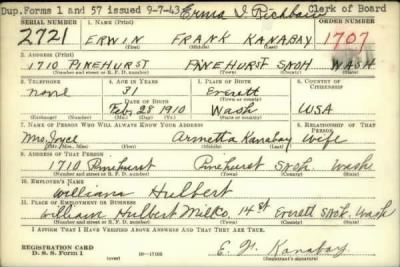 Dup. Forms 1 and 57 issued 9-7-43 Erma I. Richbau Clerk of Board
SERIAL NUMBER 1. NAME (Print) ORDER NUMBER
2721 ERWIN FRANK KANABAY 1707
(First) (Middle) (Last)
2. ADDRESS (Print)
1710 PINEHURST PINEHURST SNOH WASH
(Number and street or R. F. D. number) (Town) (County) (State)
3. TELEPHONE 4. AGE IN YEARS 5. PLACE OF BIRTH 6. COUNTRY OF CITIZENSHIP
none 31 Everett
DATE OF BIRTH (Town or county)
Feb. 28 1910 Wash USA
(Mo.) (Day) (Yr.) (State or country)
7. NAME OF PERSON WHO WILL ALWAYS KNOW YOUR ADDRESS 8. RELATIONSHIP OF THAT PERSON
Mrs Joyce Arnetta Kanabay Wife
(Mr., Mrs., Miss) (First) (Middle) (Last)
9. ADDRESS OF THAT PERSON
1710 Pinehurst Pinehurst Snoh. Wash
(Number and street or R. F. D. number) (Town) (County) (State)
10. EMPLOYER'S NAME
William Hulbert
11. PLACE OF EMPLOYMENT OR BUSINESS
William Hulbert Mill Co, 14 St Everett Snoh. Wash
(Number and street or R. F. D. number) (Town) (County) (State)
I AFFIRM THAT I HAVE VERIFIED ABOVE ANSWERS AND THAT THEY ARE TRUE.
REGISTRATION CARD
D. S. S. Form 1 (over) 16—17105 E. F. Kanabay